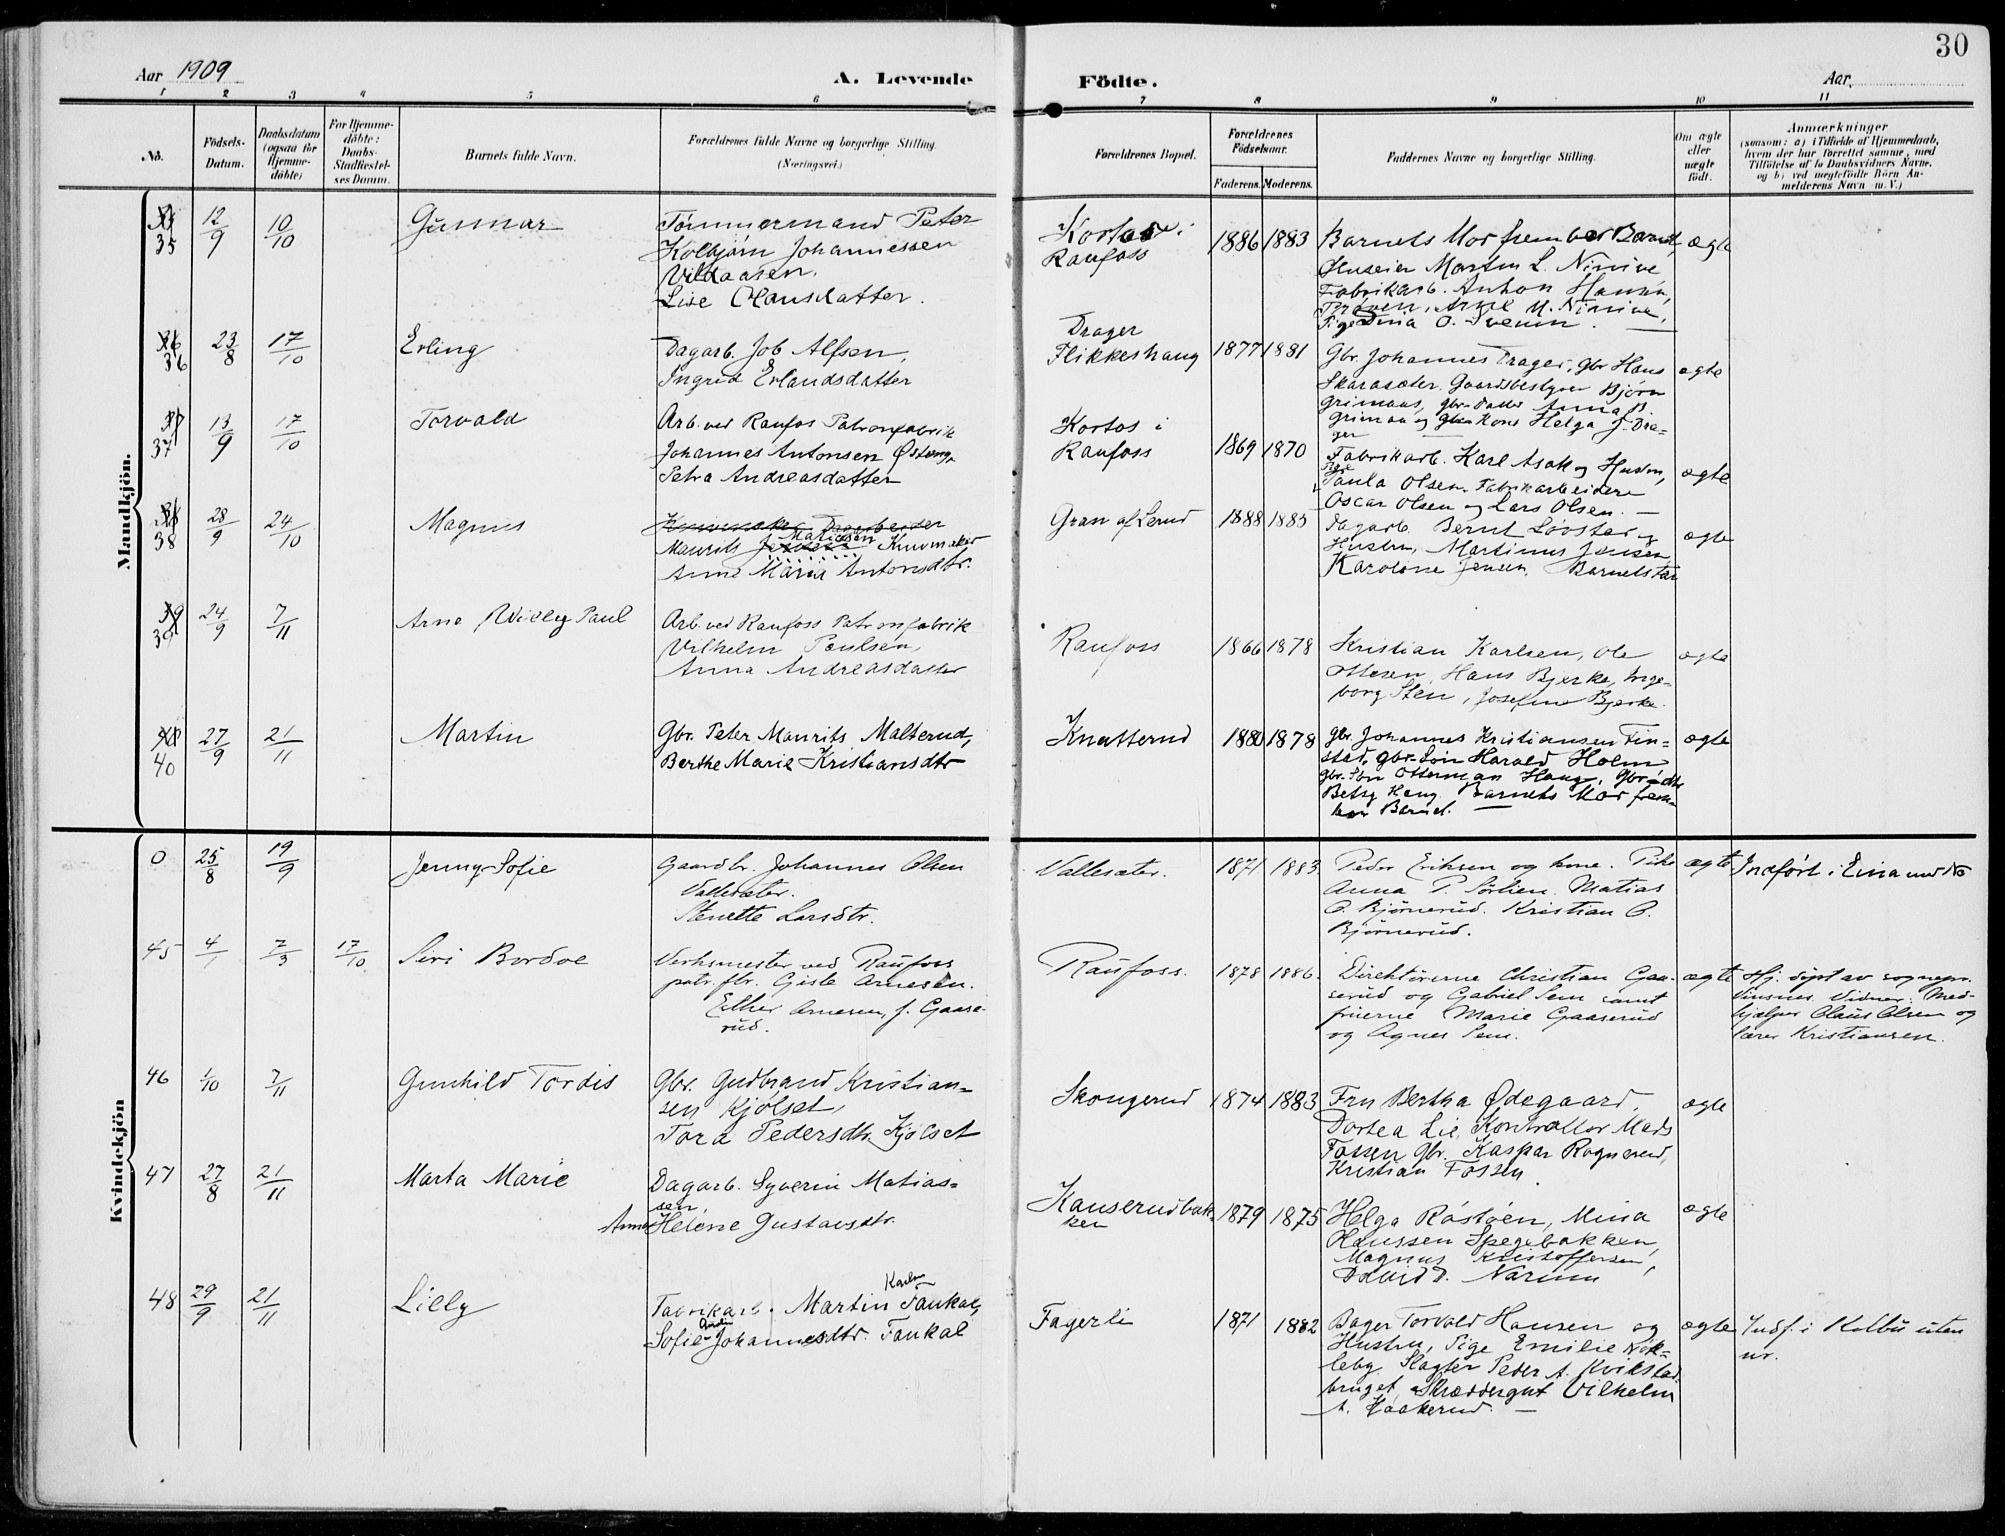 30
Aar 1909
A. Levende Födte.
Aar
1 2 3 4 5 6 7 8 9 10 11
No.
Födsels-Datum.
Daabsdatum (ogsaa for Hjemme-döbte)
For Hjemme-döbte: Daabs-Stadfæstel-ses Datum.
Barnets fulde Navn.
Forældrenes fulde Navne og borgerlige Stilling. (Næringsvei.)
Forældrenes Bopæl.
Forældrenes Födselsaar.
Faderens. Moderens.
Faddernes Navne og borgerlige Stilling.
Om ægte eller uægte födt.
Anmærkninger
(saasom: a) i Tilfælde af Hjemmedaab, hvem der har forrettet samme, med Tilföielse af to Daabsvidners Navne, og b) ved uægtefödte Börn An-melderens Navn m. V.)
Mandkjön.
35 12/9 10/10 Gunnar
Tømmermand Peter
Kolbjørn Johannessen
Vildaasen.
Lise Olausdatter.
Kortos i
Raufoss
1886 1883
Barnets Mor frembar Barnet,
Huseier Martin L. Ninive
Fabrikarb. Anton Hansen,
ægte
36 23/8 17/10 Erling
Dagarb. Job Alfsen,
Ingrid Erlandsdatter
Drager
Flikkeshaug
1877 1881
Gbr. Johannes Drager, gbr Hans
Skarasæter. Gaardsbestyrer Bjørn
Grimaas, gbr-datter Anna B.
Grimaa og Kone Helga J. Dra-
ger
ægte
37 13/9 17/10 Torvald
Arb. ved Raufos Patronfabrik
Johannes Antonsen Østeng,
Petra Andreasdatter
Kortos i
Raufoss
1869 1870
Fabrikarb. Karl Asak og Hustru,
Pige Paula Olsen. Fabrikarbeidere
Oscar Olsen og Lars Olsen. —
ægte
38 28/9 24/10 Magnus
Maurits Matiasen
Anne Maria Antonsdtr.
Gran af Lerud
1888 1885
Dagarb. Bernt Løvstad og
Hustru, Martinus Jensen
Karoline Jensen. Barnets Far
ægte
39 24/9 7/11 Arne Willy Paul
Arb. ved Raufoss Patronfabrik
Vilhelm Paulsen,
Anna Andreasdatter
Raufoss
1866 1878
Kristian Karlsen, Ole
Ottesen, Hans Bjerke, Inge-
borg Sten, Josefine Bjerke.
ægte
40 27/9 21/11 Martin
Gbr. Peter Maurits Malterud,
Berthe Marie Kristiansdtr
Knatterud
1880 1878
gbr. Johannes Kristiansen Fin-
stad, gbr-Søn Harald Holm
gbr. Søn Otterman Haug, Gbr-dtr
Betsy Haug. Barnets Mor frem-
bar Barnet.
ægte
Kvindekjön
0 25/8 19/9 Jenny Sofie
Gaardbr. Johannes Olsen
Vallesæter.
Stenette Larsdtr.
Vallesæter.
1871 1883
Peder Eriksen og kone. Pike
Anna P. Sørlien. Matias
O. Bjørnerud. Kristian O.
Bjørnerud.
ægte
Indført i Eina und. No
45 4/1 7/3 17/10 Siri Bordoe
Verksmester ved Raufoss
patr. fbr. Gisle Arnesen.
Esther Arnesen, f. Gaase-
rud.
Raufoss.
1878 1886.
Direktørerne Christian Gaa-
serud og Gabriel Sem samt
fruerne Marie Gaaserud
og Agnes Sem.
ægte
Hj. døpt av sognepr.
Vinsnes. Vidner: Med-
hjælper Claus Olsen og
lærer Kristiansen.
46 1/10 7/11 Gunhild Tordis
Gbr. Gudbrand Kristian-
sen Kjølset,
Tora Pedersdtr. Kjølset
Skongerud
1874 1883
Fru Bertha Ødegaard,
Dortea Lie, Kontrollør Mads
Fossen gbr. Kaspar Rognerud,
Kristian Fossen.
ægte
47 27/8 21/11 Marta Marie
Dagarb. Syverin Matias-
sen,
Anne Helene Gustavsdtr.
Kauserudbak-
ken
1879 1875
Helga Røstøen, Mina
Hanssen Spegebakken,
Magnus Kristoffersen,
David D. Narum
ægte
48 29/9 21/11 Lilly
Fabrikarb. Martin Karlsen Faukal,
Sofie Johannesdtr. Faukal
Fagerli
1871 1882
Bager Torvald Hansen og
Hustru, Pige Emilie Nøk-
leby. Slagter Peder A. Kvikstad-
bruget, Skræddergut Vilhelm
A. Haakerud. —
ægte
Indf. i Kolbu uten
nr.